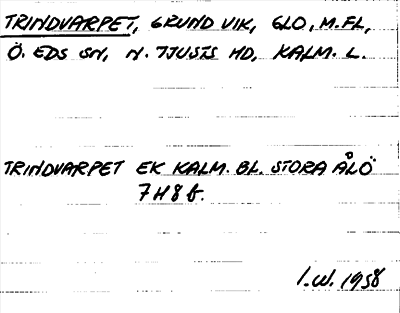 TRINDVARPET, GRUND VIK, GLO, M.FL,
Ö. EDS SN, N. TJUSTS HD, KALM. L.
TRINDVARPET EK KALM. BL. STORA ÅLÖ
7H8f.
I.W. 1958